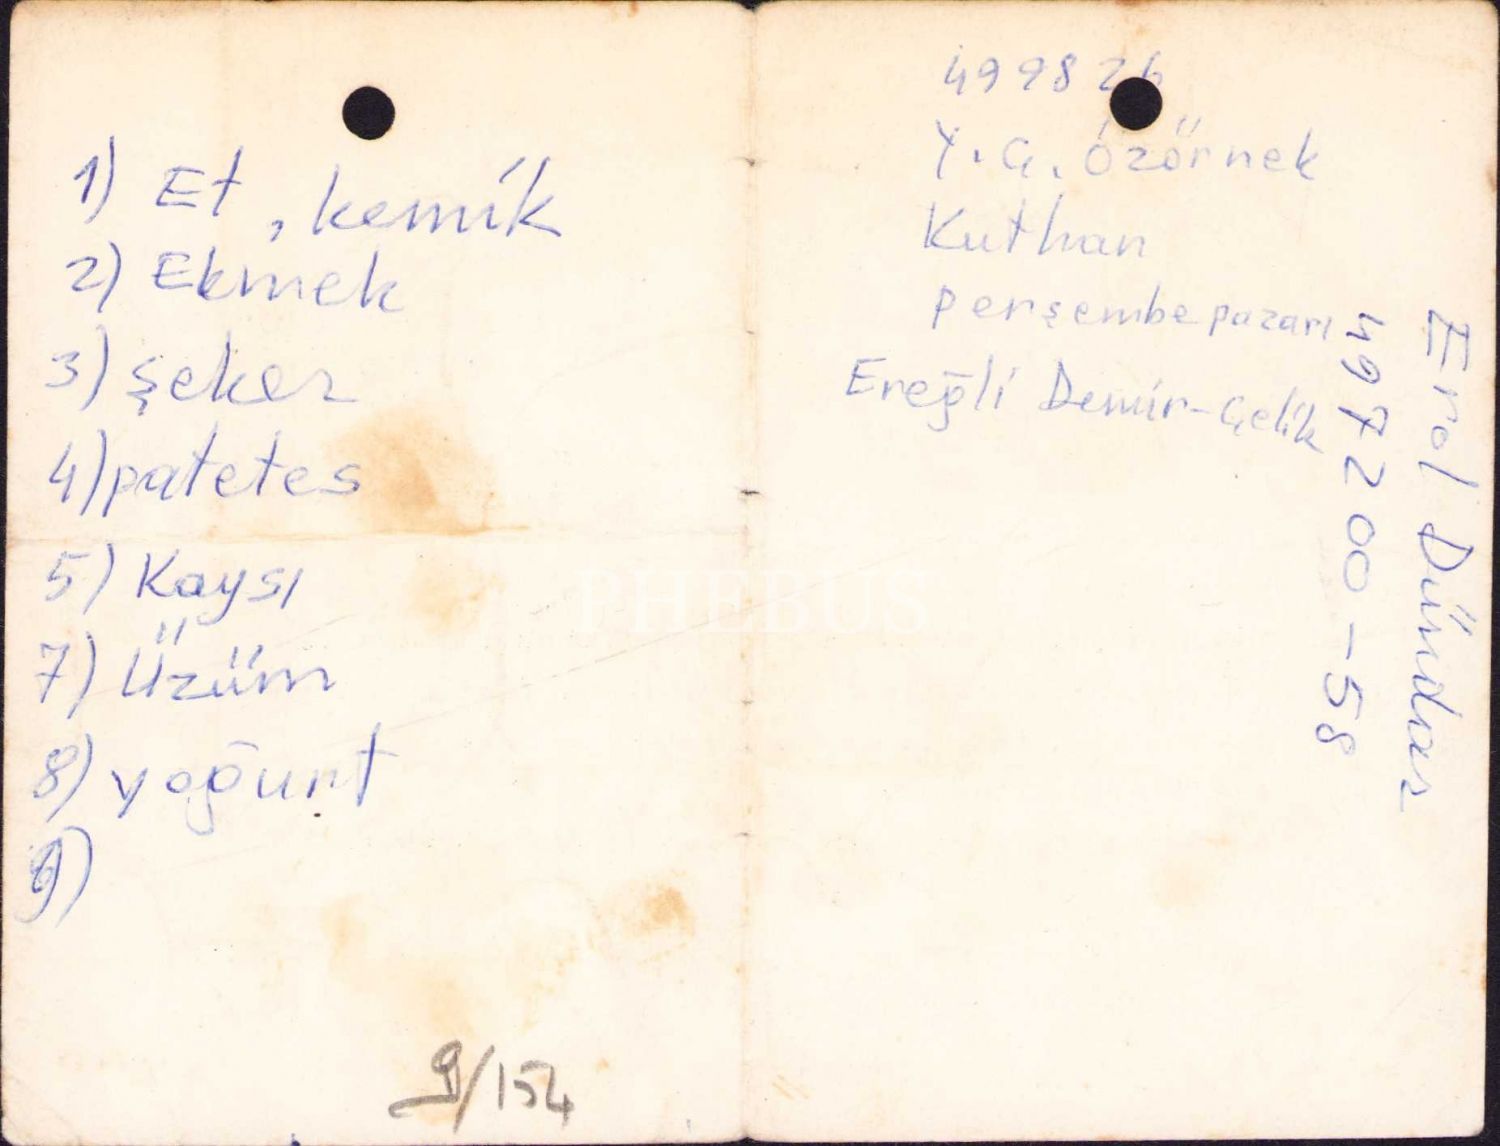 1) Et, kemik
2) Ekmek
3) şeker
4) patates
5) Kaysı
7) Üzüm
8) yoğurt
9)
9/154
499826
Y. Ç. Özörnek
Kuthan
perşembe pazarı
Ereğli Demir-Çelik
497200-58
Erol Dündar
PHEBUS